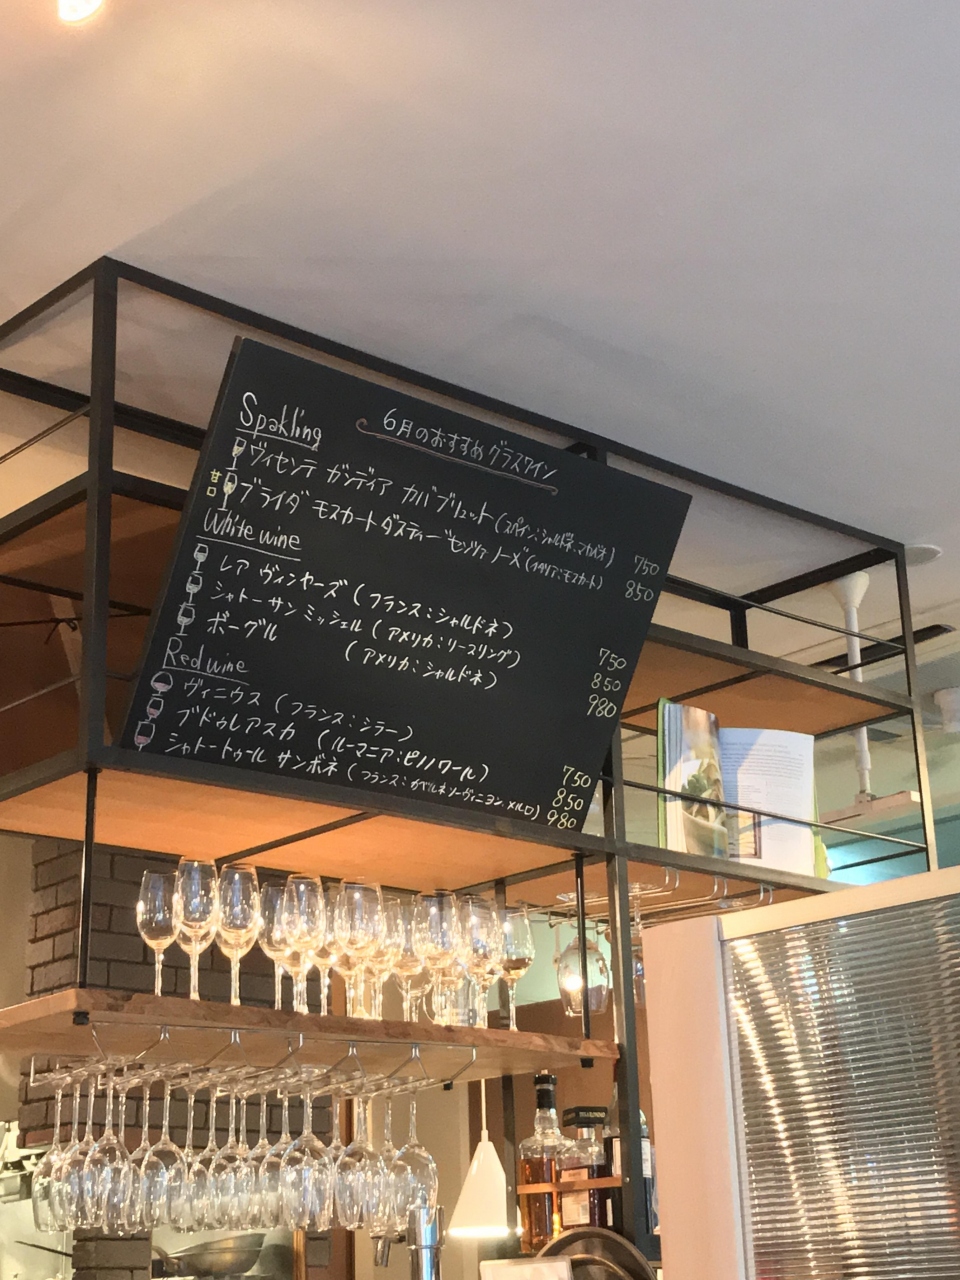 6月のおすすめグラスワイン
Spakling
ヴィセンテ ガンディア カバ ブリュット (スペイン:シャルドネ、マカベオ) 750
甘口 ブライダ モスカートダスティー (イタリア:モスカート) 850
White wine
レア ヴィンヤーズ (フランス:シャルドネ) 750
シャトー サン ミッシェル (アメリカ:リースリング) 850
ボーグル (アメリカ:シャルドネ) 980
Red wine
ヴィニウス (フランス:シラー) 750
ブドゥレアスカ (ルーマニア:ピノノワール) 850
シャトートゥール サンボネ (フランス:カベルネソーヴィニヨン、メルロ) 980